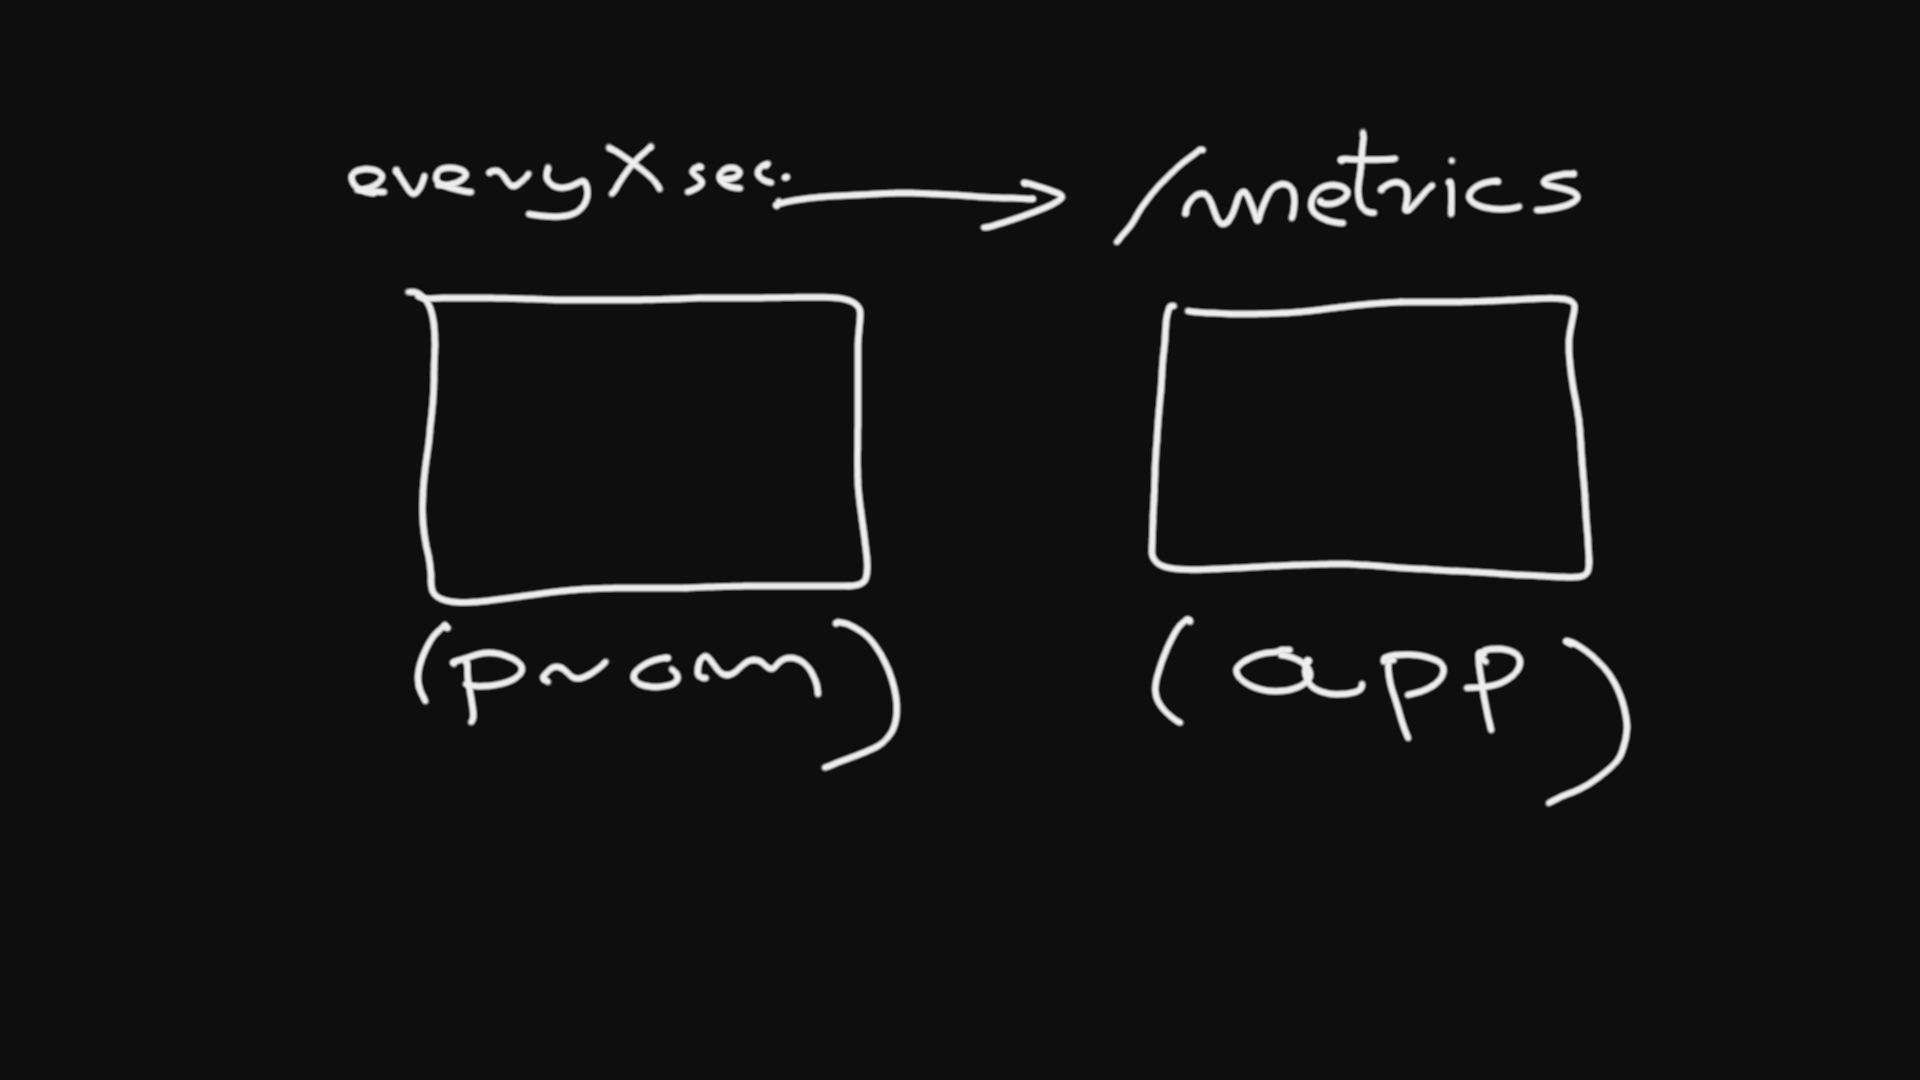 every X sec. /metrics
(prom) (app)